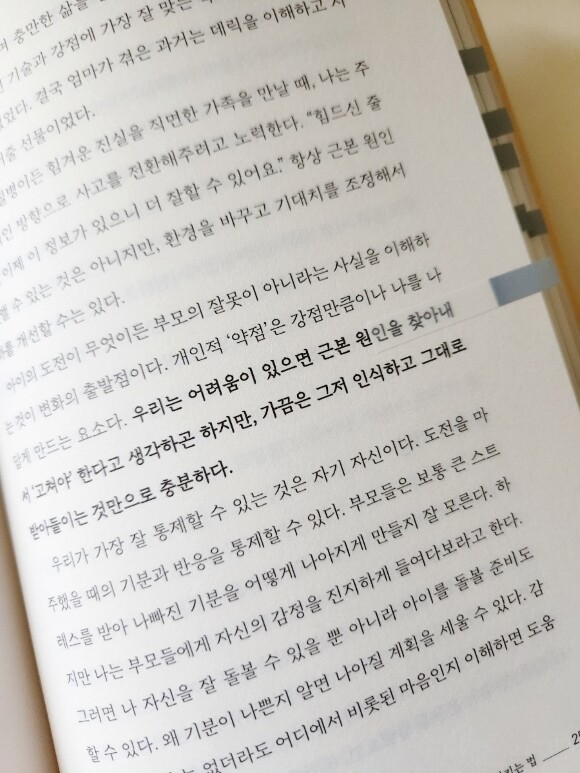 충만한 삶을
기술과 강점에 가장 잘 맞는
결국 엄마가 겪은 과거는 대릭을 이해하고 지
선물이었다.
힘겨운 진실을 직면한 가족을 만날 때, 나는 주
방향으로 사고를 전환해주려고 노력한다. “힘드신 줄
이제 이 정보가 있으니 더 잘할 수 있어요.” 항상 근본 원인
수 있는 것은 아니지만, 환경을 바꾸고 기대치를 조정해서
개선할 수는 있다.
아이의 도전이 무엇이든 부모의 잘못이 아니라는 사실을 이해하
는 것이 변화의 출발점이다. 개인적 ‘약점’은 강점만큼이나 나를 나
답게 만드는 요소다. 우리는 어려움이 있으면 근본 원인을 찾아내
서 ‘고쳐야’ 한다고 생각하곤 하지만, 가끔은 그저 인식하고 그대로
받아들이는 것만으로 충분하다.
우리가 가장 잘 통제할 수 있는 것은 자기 자신이다. 도전을 마
주했을 때의 기분과 반응을 통제할 수 있다. 부모들은 보통 큰 스트
레스를 받아 나빠진 기분을 어떻게 나아지게 만들지 잘 모른다. 하
지만 나는 부모들에게 자신의 감정을 진지하게 들여다보라고 한다.
그러면 나 자신을 잘 돌볼 수 있을 뿐 아니라 아이를 돌볼 준비도
할 수 있다. 왜 기분이 나쁜지 알면 나아질 계획을 세울 수 있다. 감
없더라도 어디에서 비롯된 마음인지 이해하면 도움